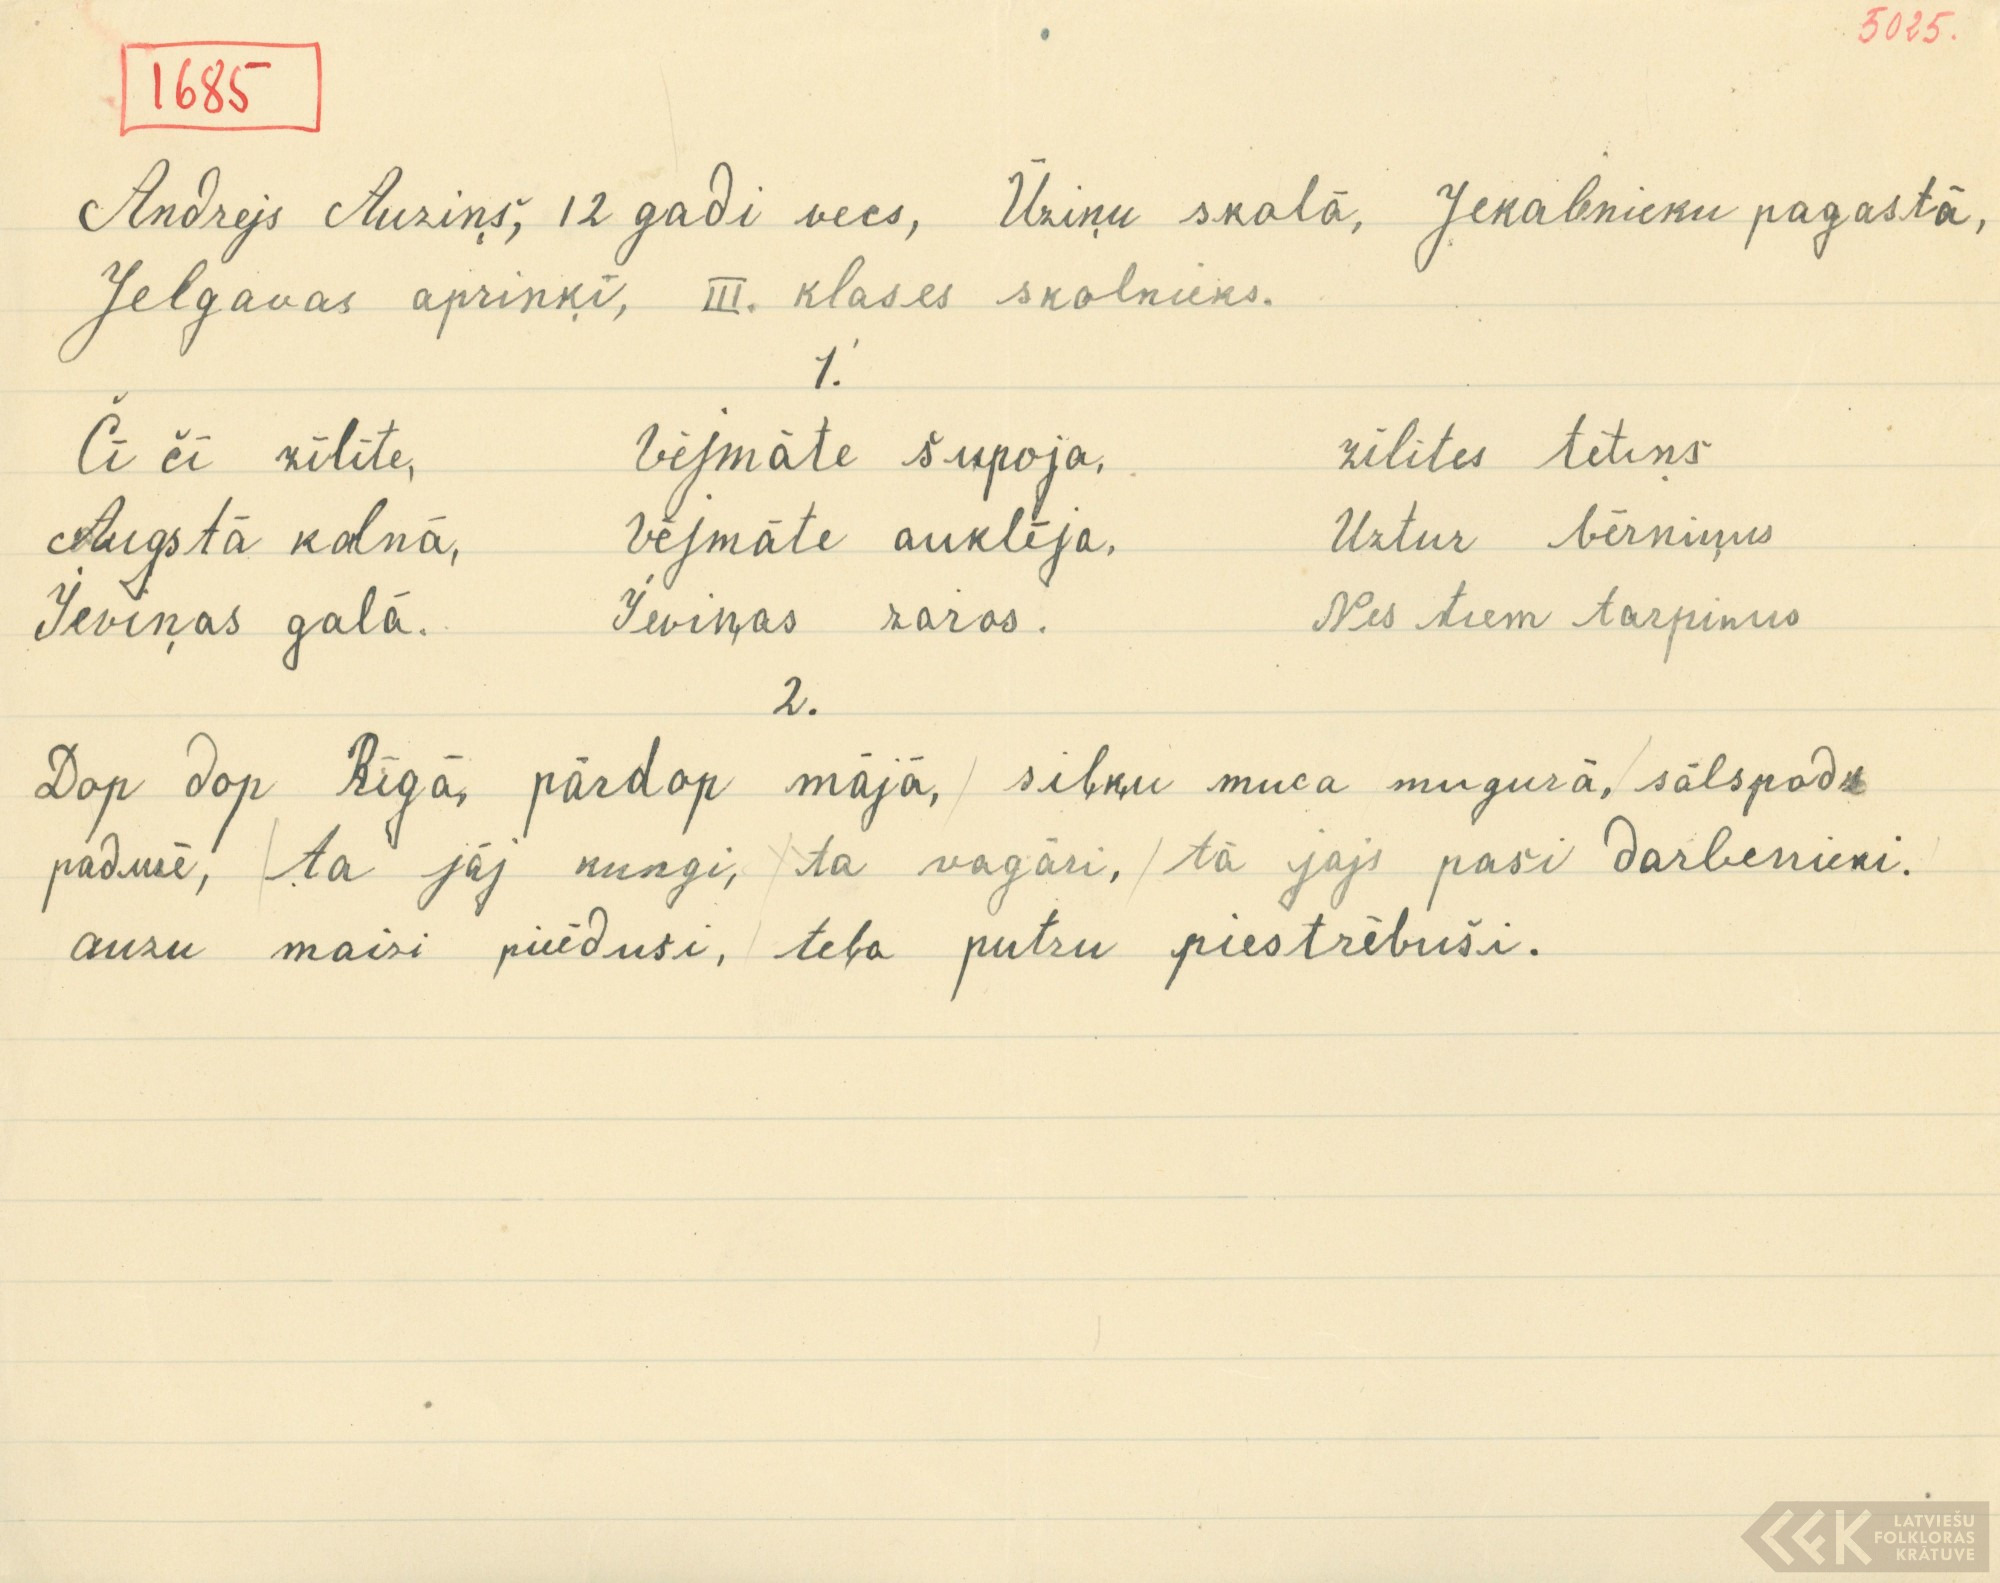 5025.
1685
Andrejs Auziņš, 12 gadi vecs, Ūziņu skolā, Jēkabnieku pagastā,
Jelgavas apriņķī, III. klases skolnieks.
1.
Čī čī zīlīte, Vējmāte šupoja, zīlītes tētiņš
Augstā kalnā, Vējmāte auklēja, Uztur bērniņus
Jeviņas galā. Jeviņas zaros. Nes tiem tārpiņus
2.
Dop dop Rīgā, pārdop mājā, / siļķu muca mugurā, / sālspodu
padusē, / ta jāj kungi, / ta vagāri, / tā jājs pasi darbenieki.
auzu maizi pieēduši, / teļa putru piestrēbuši.
LATVIEŠU
FOLKLORAS
KRĀTUVE